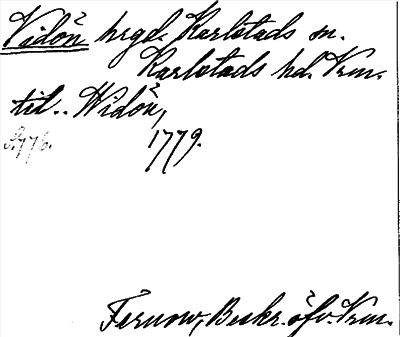 Vidön hrgd. Karlstads sn.
Karlstads hd. Vrm.
till.. Widön,
S. 776. 1779.
Fernow, Beskr. öfv. Vrm.